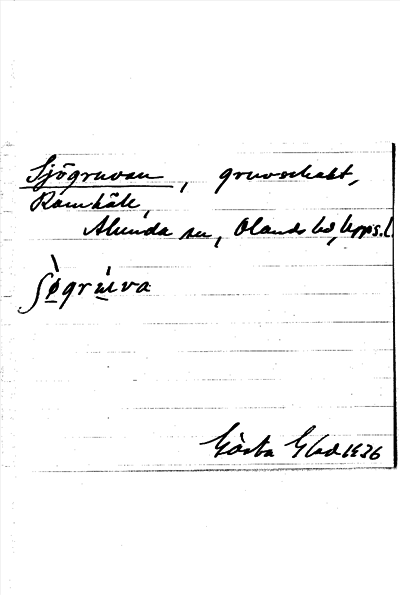 Sjögruvan, gruvschakt,
Ramhäll,
Alunda sn, Olands hd, Upps.l.
ʃø̀grɯva
Gösta Glad 1936